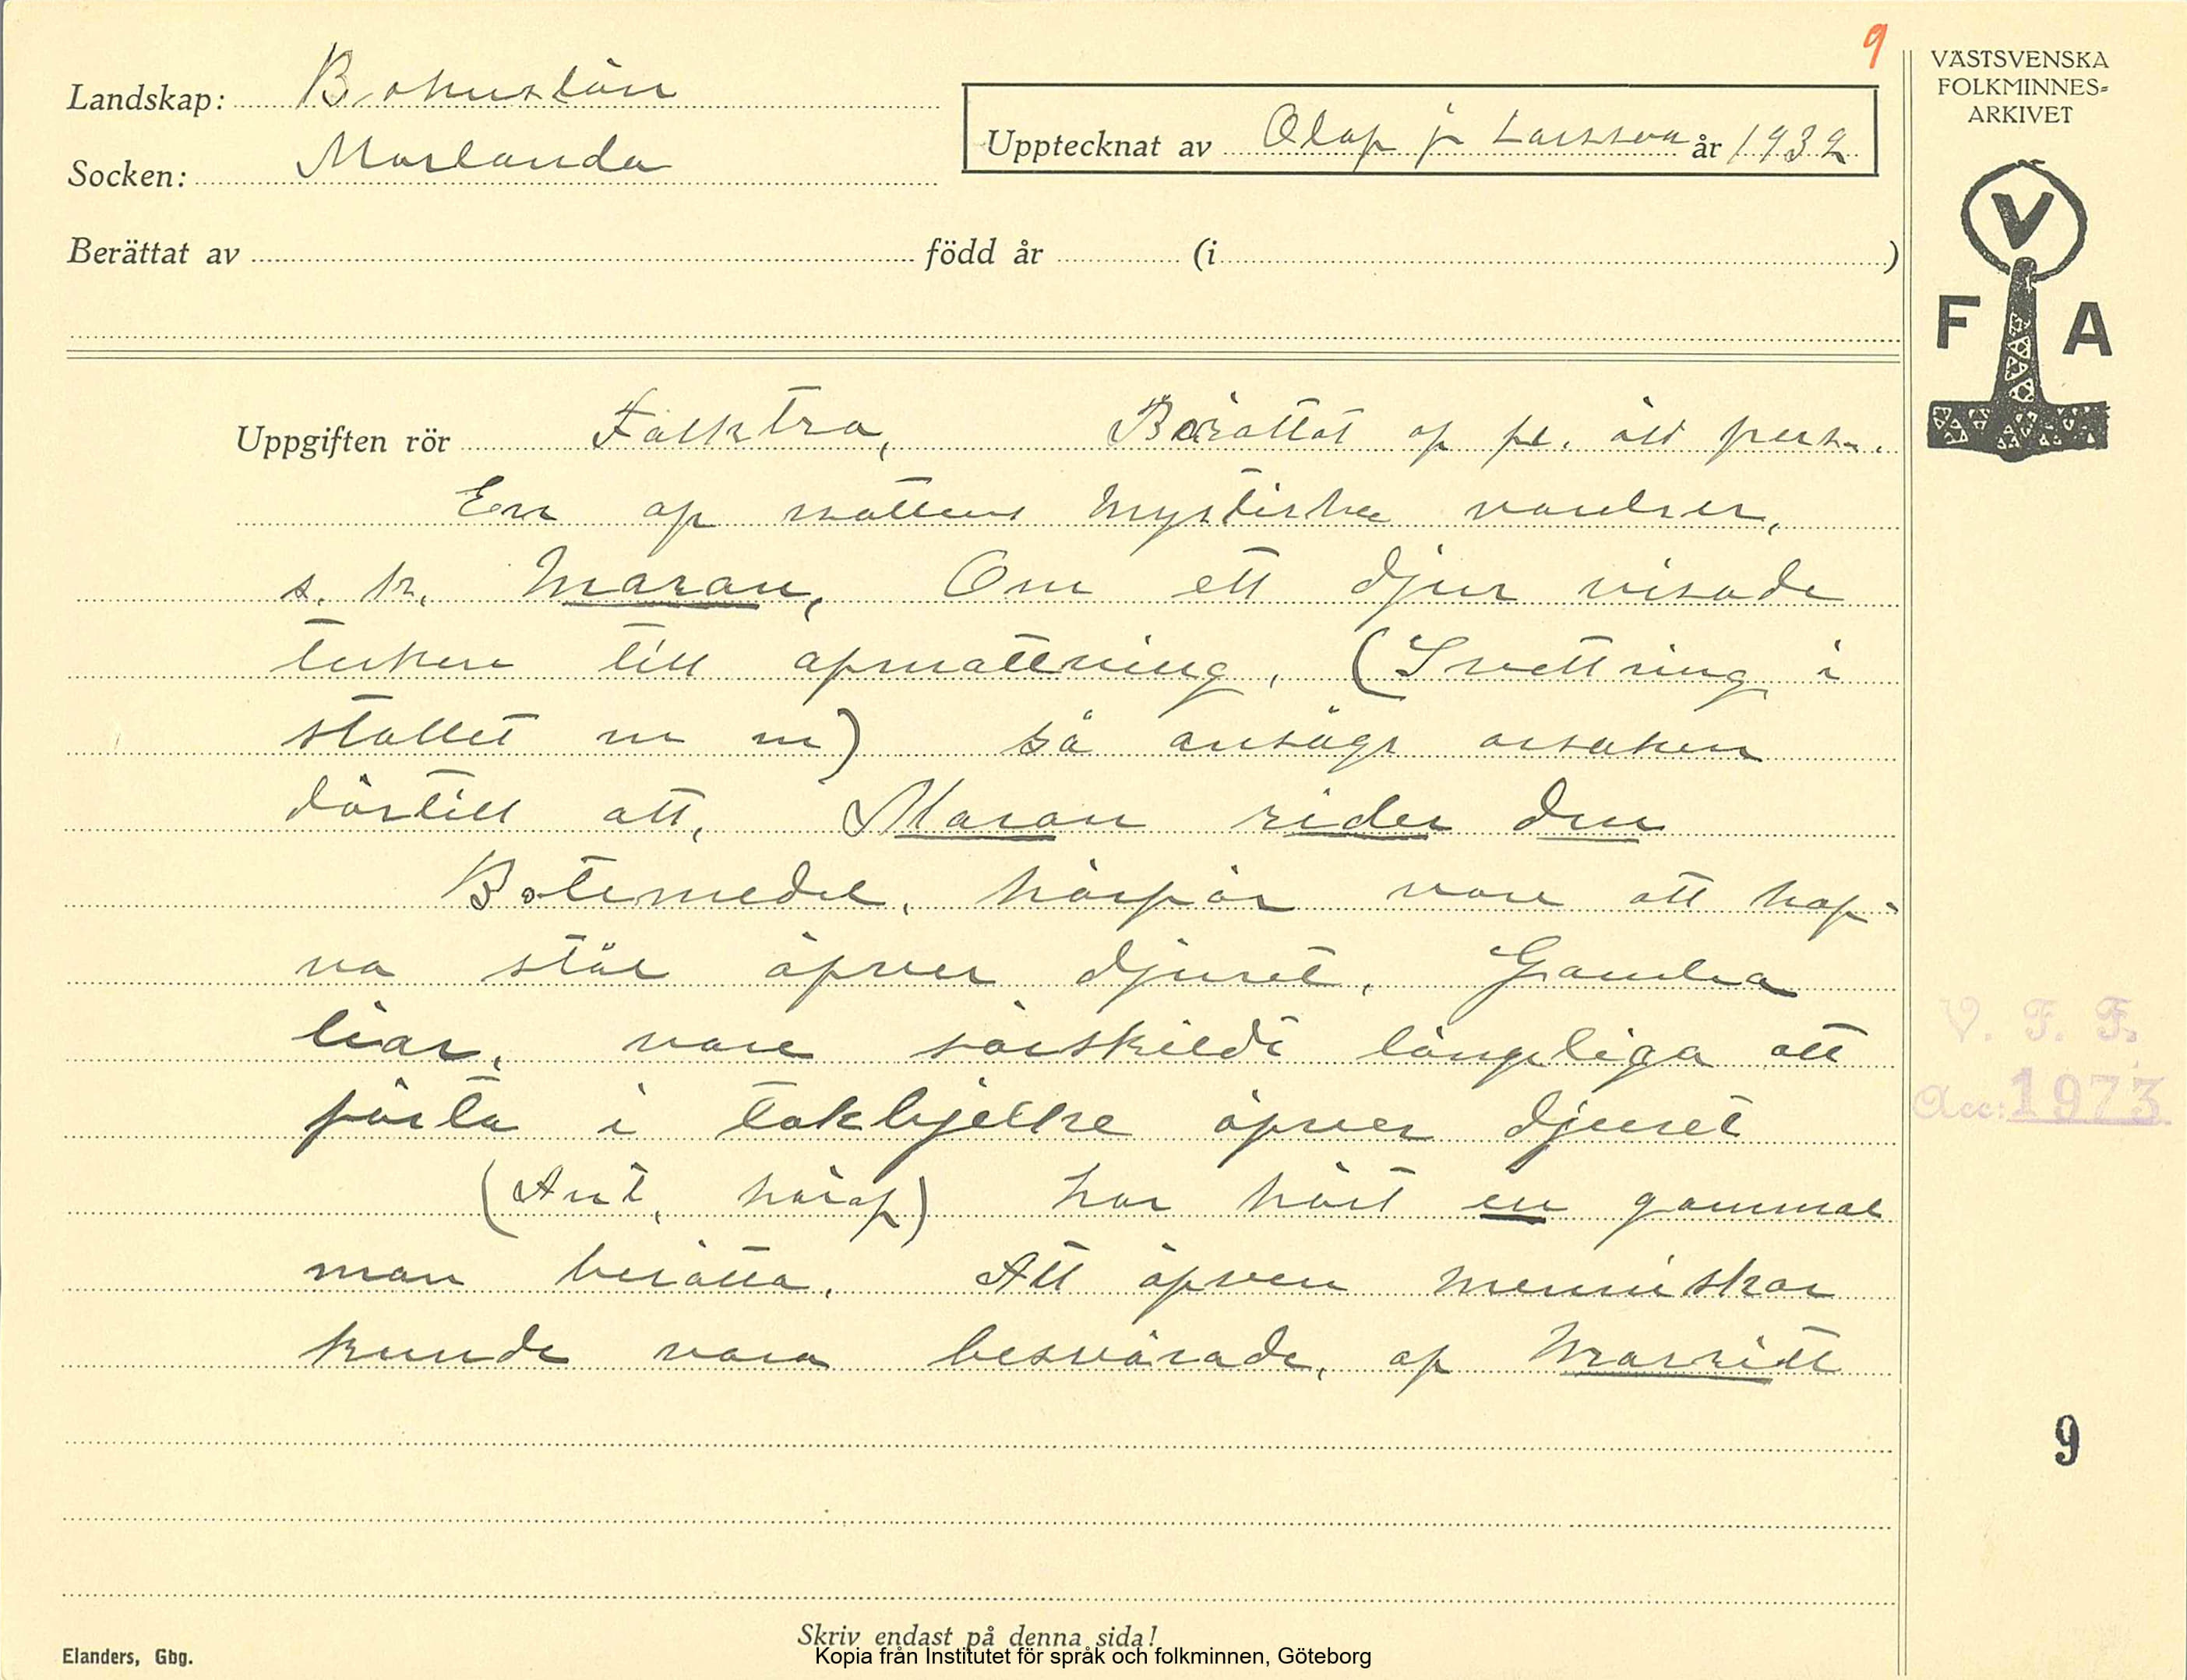 9
VÄSTSVENSKA
FOLKMINNES-
ARKIVET
Landskap: Bohuslän
Upptecknat av Olof j Larsson år 1932
Socken: Morlanda
V
F A
Berättat av född år (i )
Uppgiften rör Folktro, Berättat af fl. äld pers.
En af nattens mystiska varelser,
s. k. Maran, Om ett djur visade
tecken till afmattning, (Svettning i
stallet m m) så ansågs orsaken
därtill att, Maran rider den
Botemedel, härför vare att haf-
va stål öfver djuret, Gamla
liar, vare särskildt lämpliga att
fästa i takbjelke öfver djuret
V. F. F.
Acc: 1973
(Ant, häraf) har hört en gammal
man berätta, Att äfven menniskor
kunde vara besvärade, af Marritt
9
Skriv endast på denna sida!
Elanders, Gbg.
Kopia från Institutet för språk och folkminnen, Göteborg